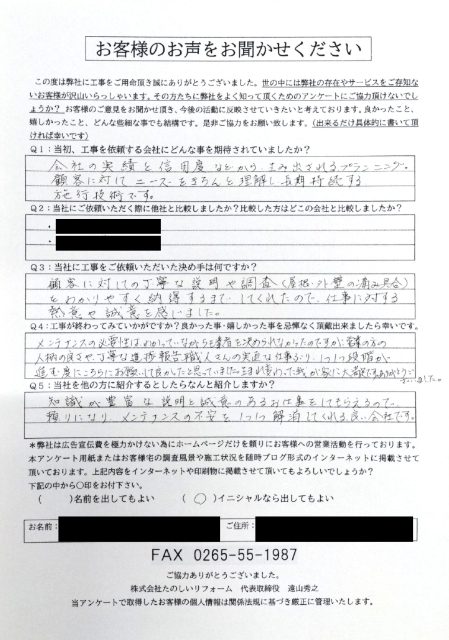 お客様のお声をお聞かせください
この度は弊社に工事をご用命頂き誠にありがとうございました。世の中には弊社の存在やサービスをご存知な
いお客様が沢山いらっしゃいます。その方たちに弊社をよく知って頂くためのアンケートにご協力頂けないでし
ょうか？お客様のご意見をお聞かせ頂き、今後の活動に反映させていきたいと考えております。良かったこと、
嬉しかったこと、どんな些細な事でも結構です。是非ご協力をお願い致します。（出来るだけ具体的に書いて頂
ければ幸いです）
Q1：当初、工事を依頼する会社にどんな事を期待されていましたか？
会社の実績と信用度などから生み出されるプランニング。
顧客に対してニーズをきちんと理解し長期持続する
施行技術です。
Q2：当社にご依頼いただく際に他社と比較しましたか？比較した方はどこの会社と比較しましたか？
・
・
Q3：当社に工事をご依頼いただいた決め手は何ですか？
顧客に対しての丁寧な説明や調査（屋根・外壁の痛み具合）
をわかりやすく納得するまでしてくれたので、仕事に対する
熱意や誠意を感じました。
Q4：工事が終わってみていかがですか？良かった事・嬉しかった事を忌憚なく頂戴出来ましたら幸いです。
メンテナンスの必要性はわかっていながらも業者を決められなかったのですが営業の方の
人柄の良さや、丁寧な進捗報告職人さんの実直な仕事ぶり、1つ1つ段階が
進む度にこちらにお願いして良かったと思っていました。生まれ変わった我が家に大満足ですありがとうございました。
Q5：当社を他の方に紹介するとしたらなんと紹介しますか？
知識が豊富な説明と誠意のあるお仕事をしてもらえるので、
頼りになり、メンテナンスの不安を1つ1つ解消してくれる良い会社です。
＊弊社は広告宣伝費を極力かけない為にホームページだけを頼りにお客様への営業活動を行っております。
本アンケート用紙またはお客様宅の調査風景や施工状況を随時ブログ形式のインターネットに掲載させて
頂いております。上記内容をインターネットや印刷物に掲載させて頂いてもよろしいでしょうか？
下記の中から〇印をお付下さい。
（　）名前を出してもよい　（○）イニシャルなら出してもよい
お名前：　ご住所：
FAX 0265-55-1987
ご協力ありがとうございました。
株式会社たのしいリフォーム　代表取締役　遠山秀之
当アンケートで取得したお客様の個人情報は関係法規に基づき厳正に管理いたします。